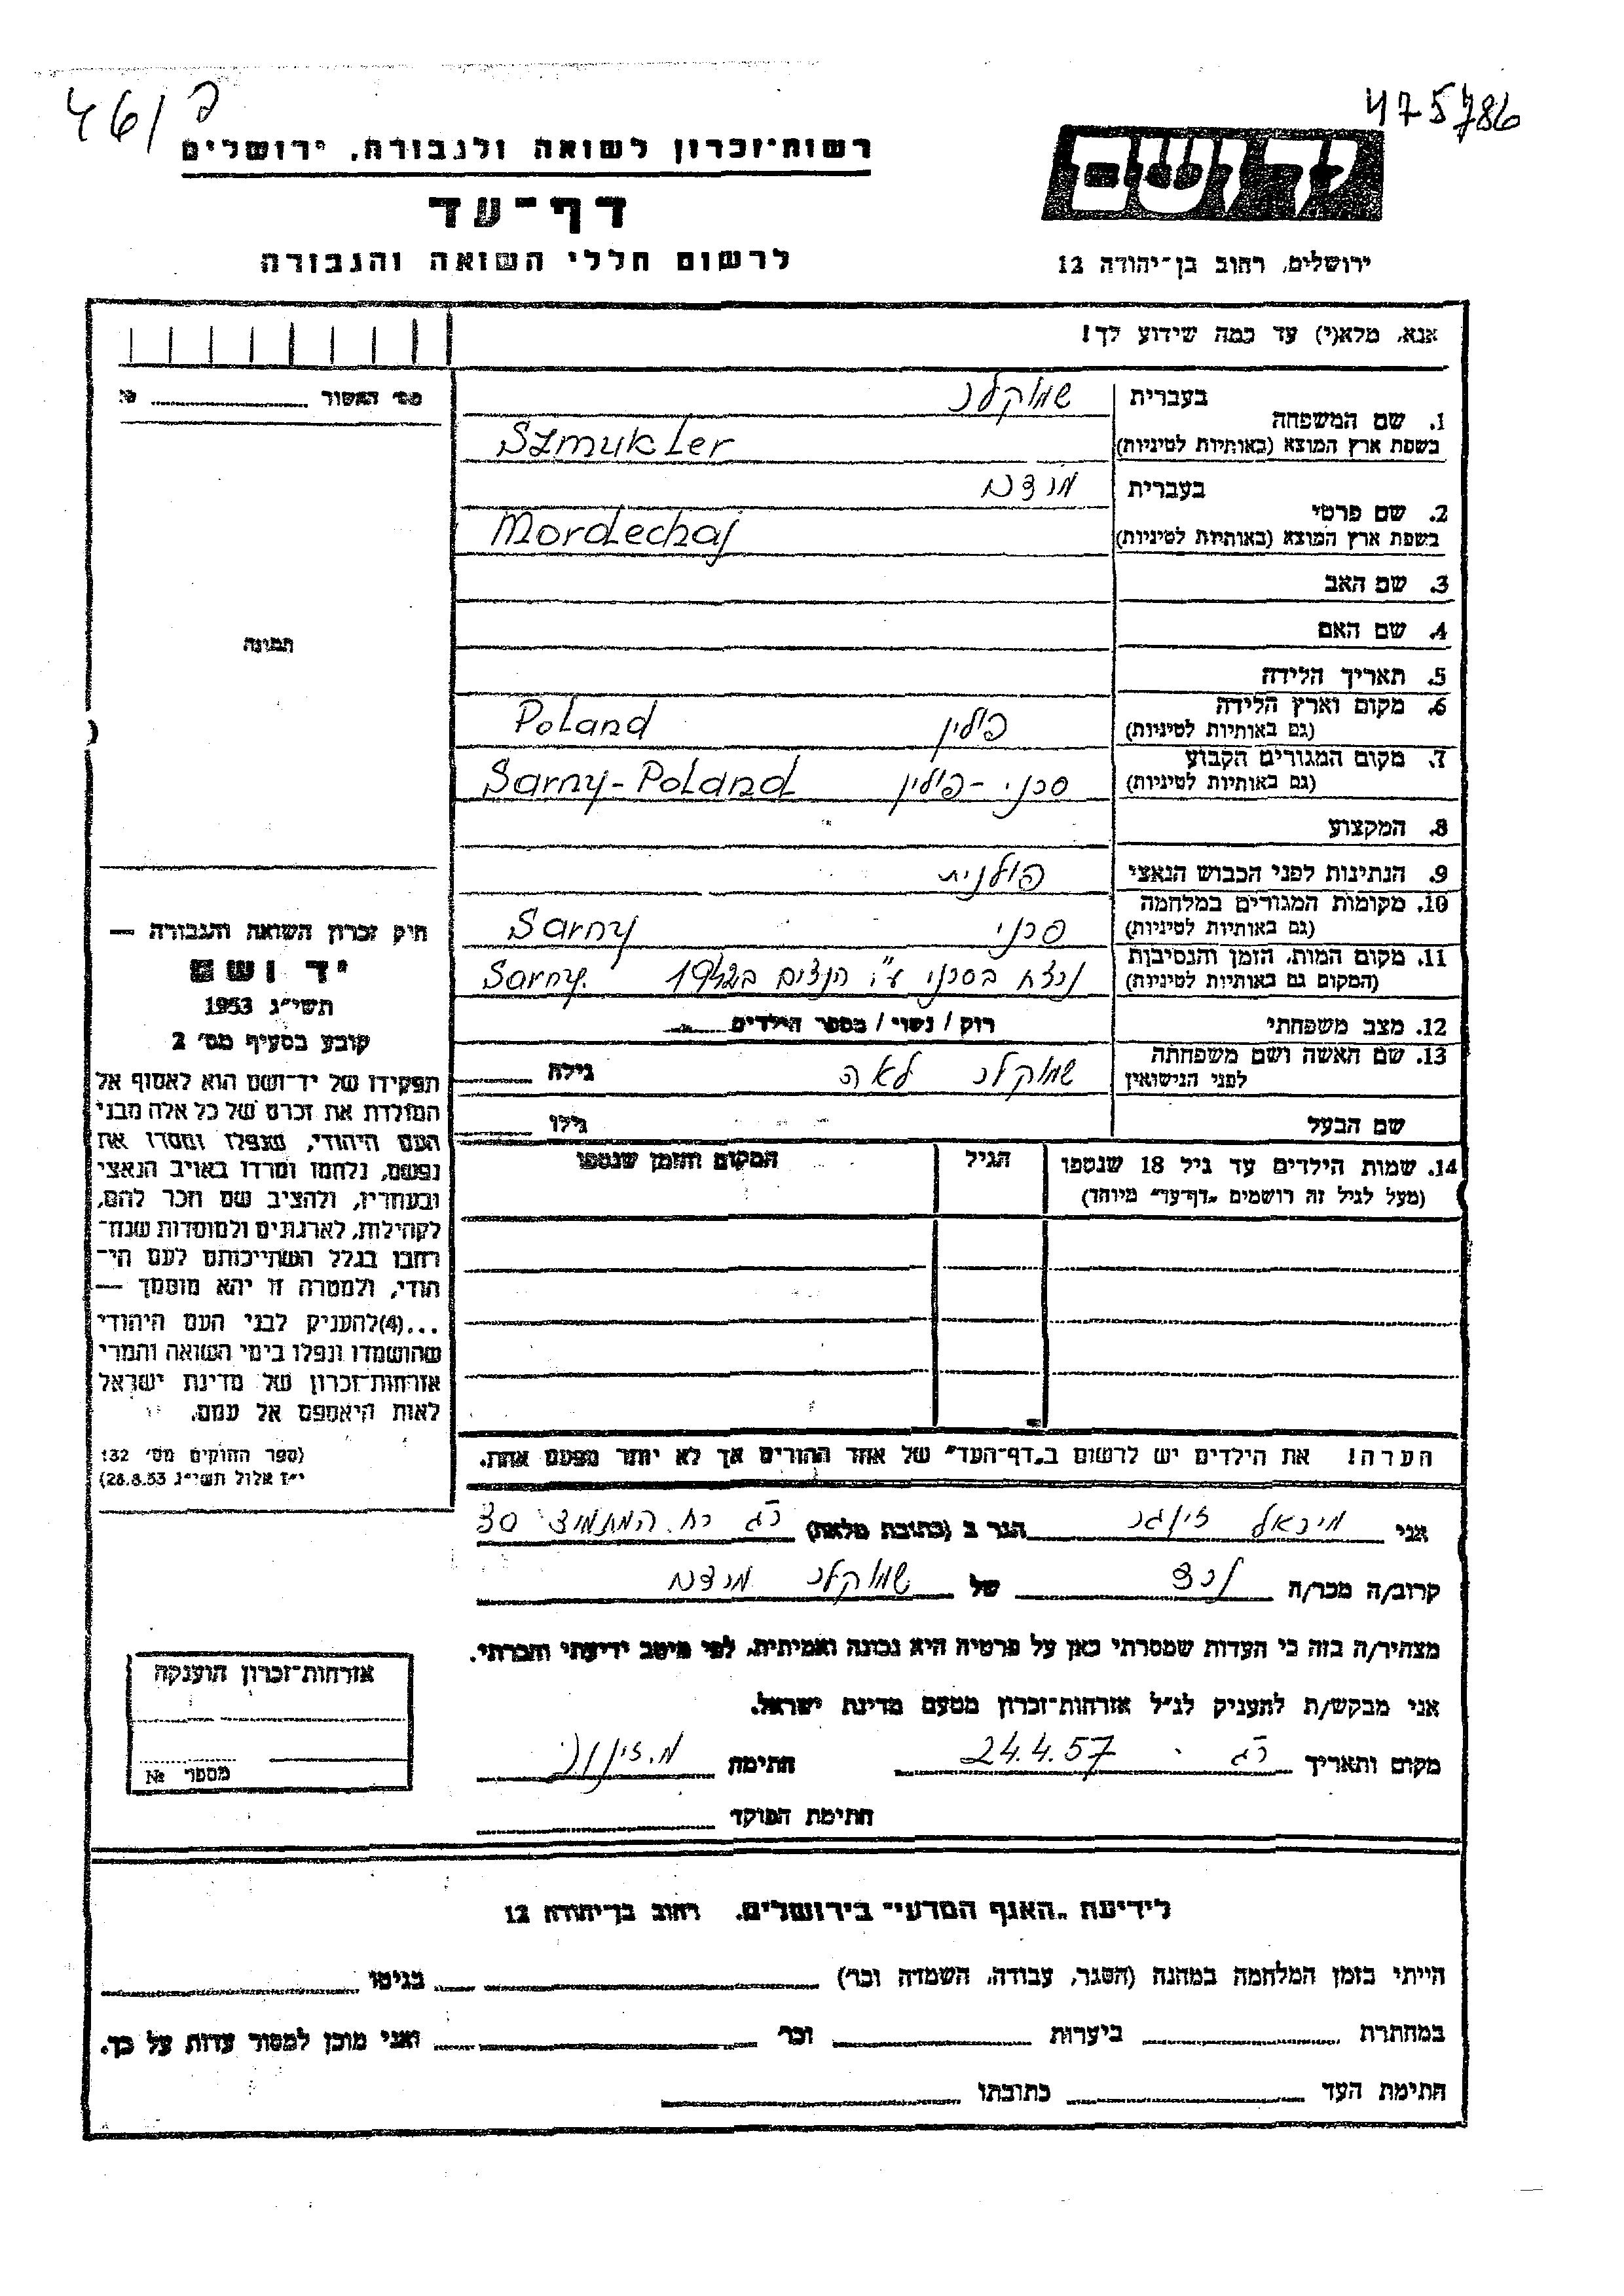 475786
פ/46
יד ושם
ירושלים, רחוב בן־יהודה 12
רשות־זכרון לשואה ולגבורה, ירושלים
דף־עד
לרשום חללי השואה והגבורה
אנא, מלא(י) עד כמה שידוע לך!
מס׳ האשור №
1. שם המשפחה
בעברית שמוקלר
בשפת ארץ המוצא (באותיות לטיניות) Szmukler
2. שם פרטי
בעברית מרדכי
בשפת ארץ המוצא (באותיות לטיניות) Mordechaj
3. שם האב
4. שם האם
5. תאריך הלידה
6. מקום וארץ הלידה
(גם באותיות לטיניות) פולין Poland
7. מקום המגורים הקבוע
(גם באותיות לטיניות) סרני - פולין Sarny - Poland
8. המקצוע
9. הנתינות לפני הכבוש הנאצי פולנית
10. מקומות המגורים במלחמה
(גם באותיות לטיניות) סרני Sarny
11. מקום המות, הזמן והנסיבות
(המקום גם באותיות לטיניות) נרצח בסרני ע"י הנאצים ב1942 Sarny.
12. מצב משפחתי רוק / נשוי / מספר הילדים
13. שם האשה ושם משפחתה
לפני הנישואין שמוקלר לאה גילה
שם הבעל גילו
14. שמות הילדים עד גיל 18 שנספו
(מעל לגיל זה רושמים „דף־עד" מיוחד)
הגיל
המקום והזמן שנספו
הערה! את הילדים יש לרשום ב„דף־העד" של אחד ההורים אך לא יותר מפעם אחת.
תמונה
חוק זכרון השואה והגבורה —
יד ושם
תשי״ג 1953
קובע בסעיף מס׳ 2
תפקידו של יד־ושם הוא לאסוף אל
המולדת את זכרם של כל אלה מבני
העם היהודי, שנפלו ומסרו את
נפשם, נלחמו ומרדו באויב הנאצי
ובעוזריו, ולהציב שם וזכר להם,
לקהילות, לארגונים ולמוסדות שנח־
רבו בגלל השתייכותם לעם הי־
הודי, ולמטרה זו יהא מוסמך —
...(4)להעניק לבני העם היהודי
שהושמדו ונפלו בימי השואה והמרי
אזרחות־זכרון של מדינת ישראל
לאות היאספם אל עמם.
(ספר החוקים מס׳ 132
י״ז אלול תשי״ג 28.8.53)
אני מיכאל זינגר הגר ב (כתובת מלאה) רג רח. המתמיד 30
קרוב/ה מכר/ה נכד של שמוקלר מרדכי
מצהיר/ה בזה כי העדות שמסרתי כאן על פרטיה היא נכונה ואמיתית, לפי מיטב ידיעתי והכרתי.
אני מבקש/ת להעניק לנ״ל אזרחות־זכרון מטעם מדינת ישראל.
מקום ותאריך רג 24.4.57 חתימה מ. זינגר
חתימת הפוקד
אזרחות־זכרון הוענקה
מספר №
לידיעת „האגף המדעי" בירושלים, רחוב בן־יהודה 12
הייתי בזמן המלחמה במחנה (הסגר, עבודה, השמדה וכו׳) בגיטו
במחתרת ביערות וכו׳ ואני מוכן למסור עדות על כך.
חתימת העד כתובתו